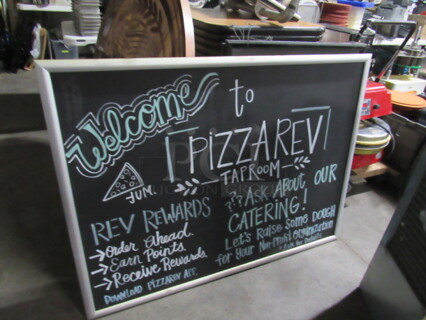 Welcome to
PIZZAREV
TAPROOM
YUM.
REV REWARDS
→ Order Ahead.
→ Earn Points.
→ Receive Rewards.
DOWNLOAD PIZZAREV APP.
??? ASK ABOUT OUR
CATERING!
LET'S RAISE SOME DOUGH
for Your Non-Profit Organization